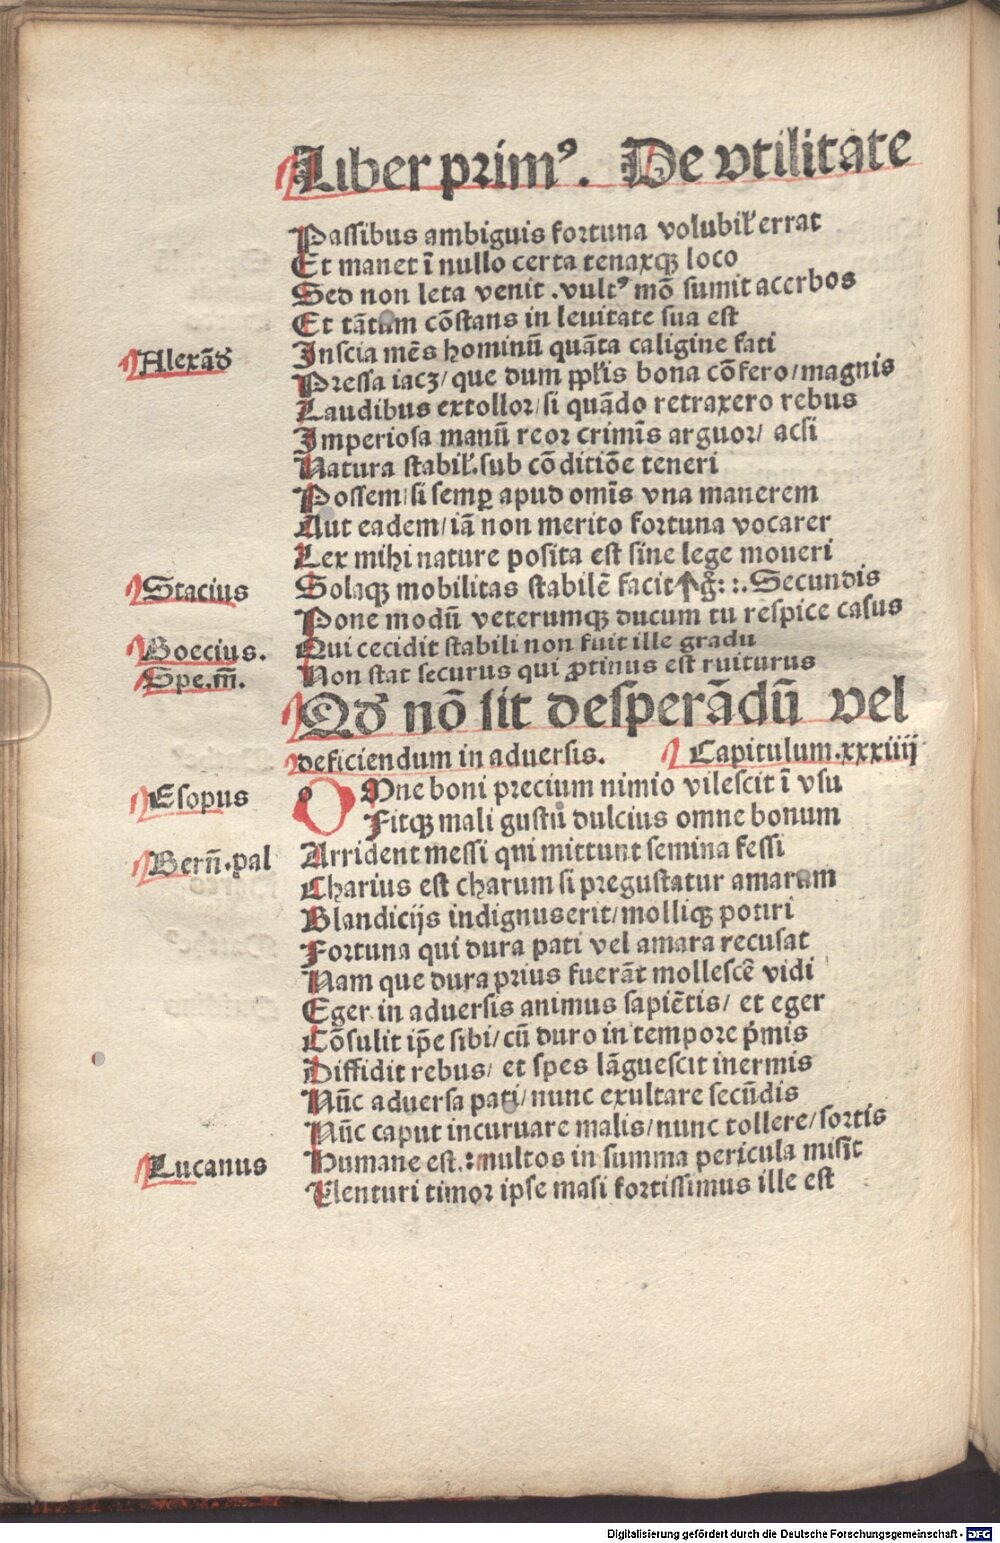 Liber primꝰ. De vtilitate
Passibus ambiguis fortuna volubil' errat
Et manet ī nullo certa tenaxqꝫ loco
Sed non leta venit .vultꝰ mō sumit acerbos
Et tātum cōstans in leuitate sua est
Alexād'
Inscia mēs hominū quāta caligine fati
Pressa iacꝫ/ que dum ꝓpl'is bona cōfero/magnis
Laudibus extollor/si quādo retraxero rebus
Imperiosa manū reor crimīs arguor/ acsi
Natura stabil'.sub cōditiōe teneri
Possem/si semꝑ apud omīs vna manerem
Aut eadem/iā non merito fortuna vocarer
Lex mihi nature posita est sine lege moueri
Stacius
Solaqꝫ mobilitas stabilē facit :. Secundis
Pone modū veterumqꝫ ducum tu respice casus
Boecius.
Qui cecidit stabili non fuit ille gradu
Spe.m̄.
Non stat securus qui ꝓtinus est ruiturus
Qd' nō sit desperādū vel
deficiendum in aduersis. Capitulum.xxxiiij
Esopus
OMne boni precium nimio vilescit ī vsu
Fitqꝫ mali gustū dulcius omne bonum
Bern̄.pal
Arrident messi qui mittunt semina fessi
Charius est charum si pregustatur amarum
Blandicijs indignuserit/molliqꝫ potiri
Fortuna qui dura pati vel amara recusat
Nam que dura prius fuerāt mollescē vidi
Eger in aduersis animus sapiētis/ et eger
Cōsulit ip̄e sibi/cū duro in tempore p̄mis
Diffidit rebus/ et spes lāguescit inermis
Nūc aduersa pati/nunc exultare secūdis
Nūc caput incuruare malis/nunc tollere/sortis
Lucanus
Humane est.:multos in summa pericula misit
Uenturi timor ipse mali fortissimus ille est
Digitalisierung gefördert durch die Deutsche Forschungsgemeinschaft - DFG